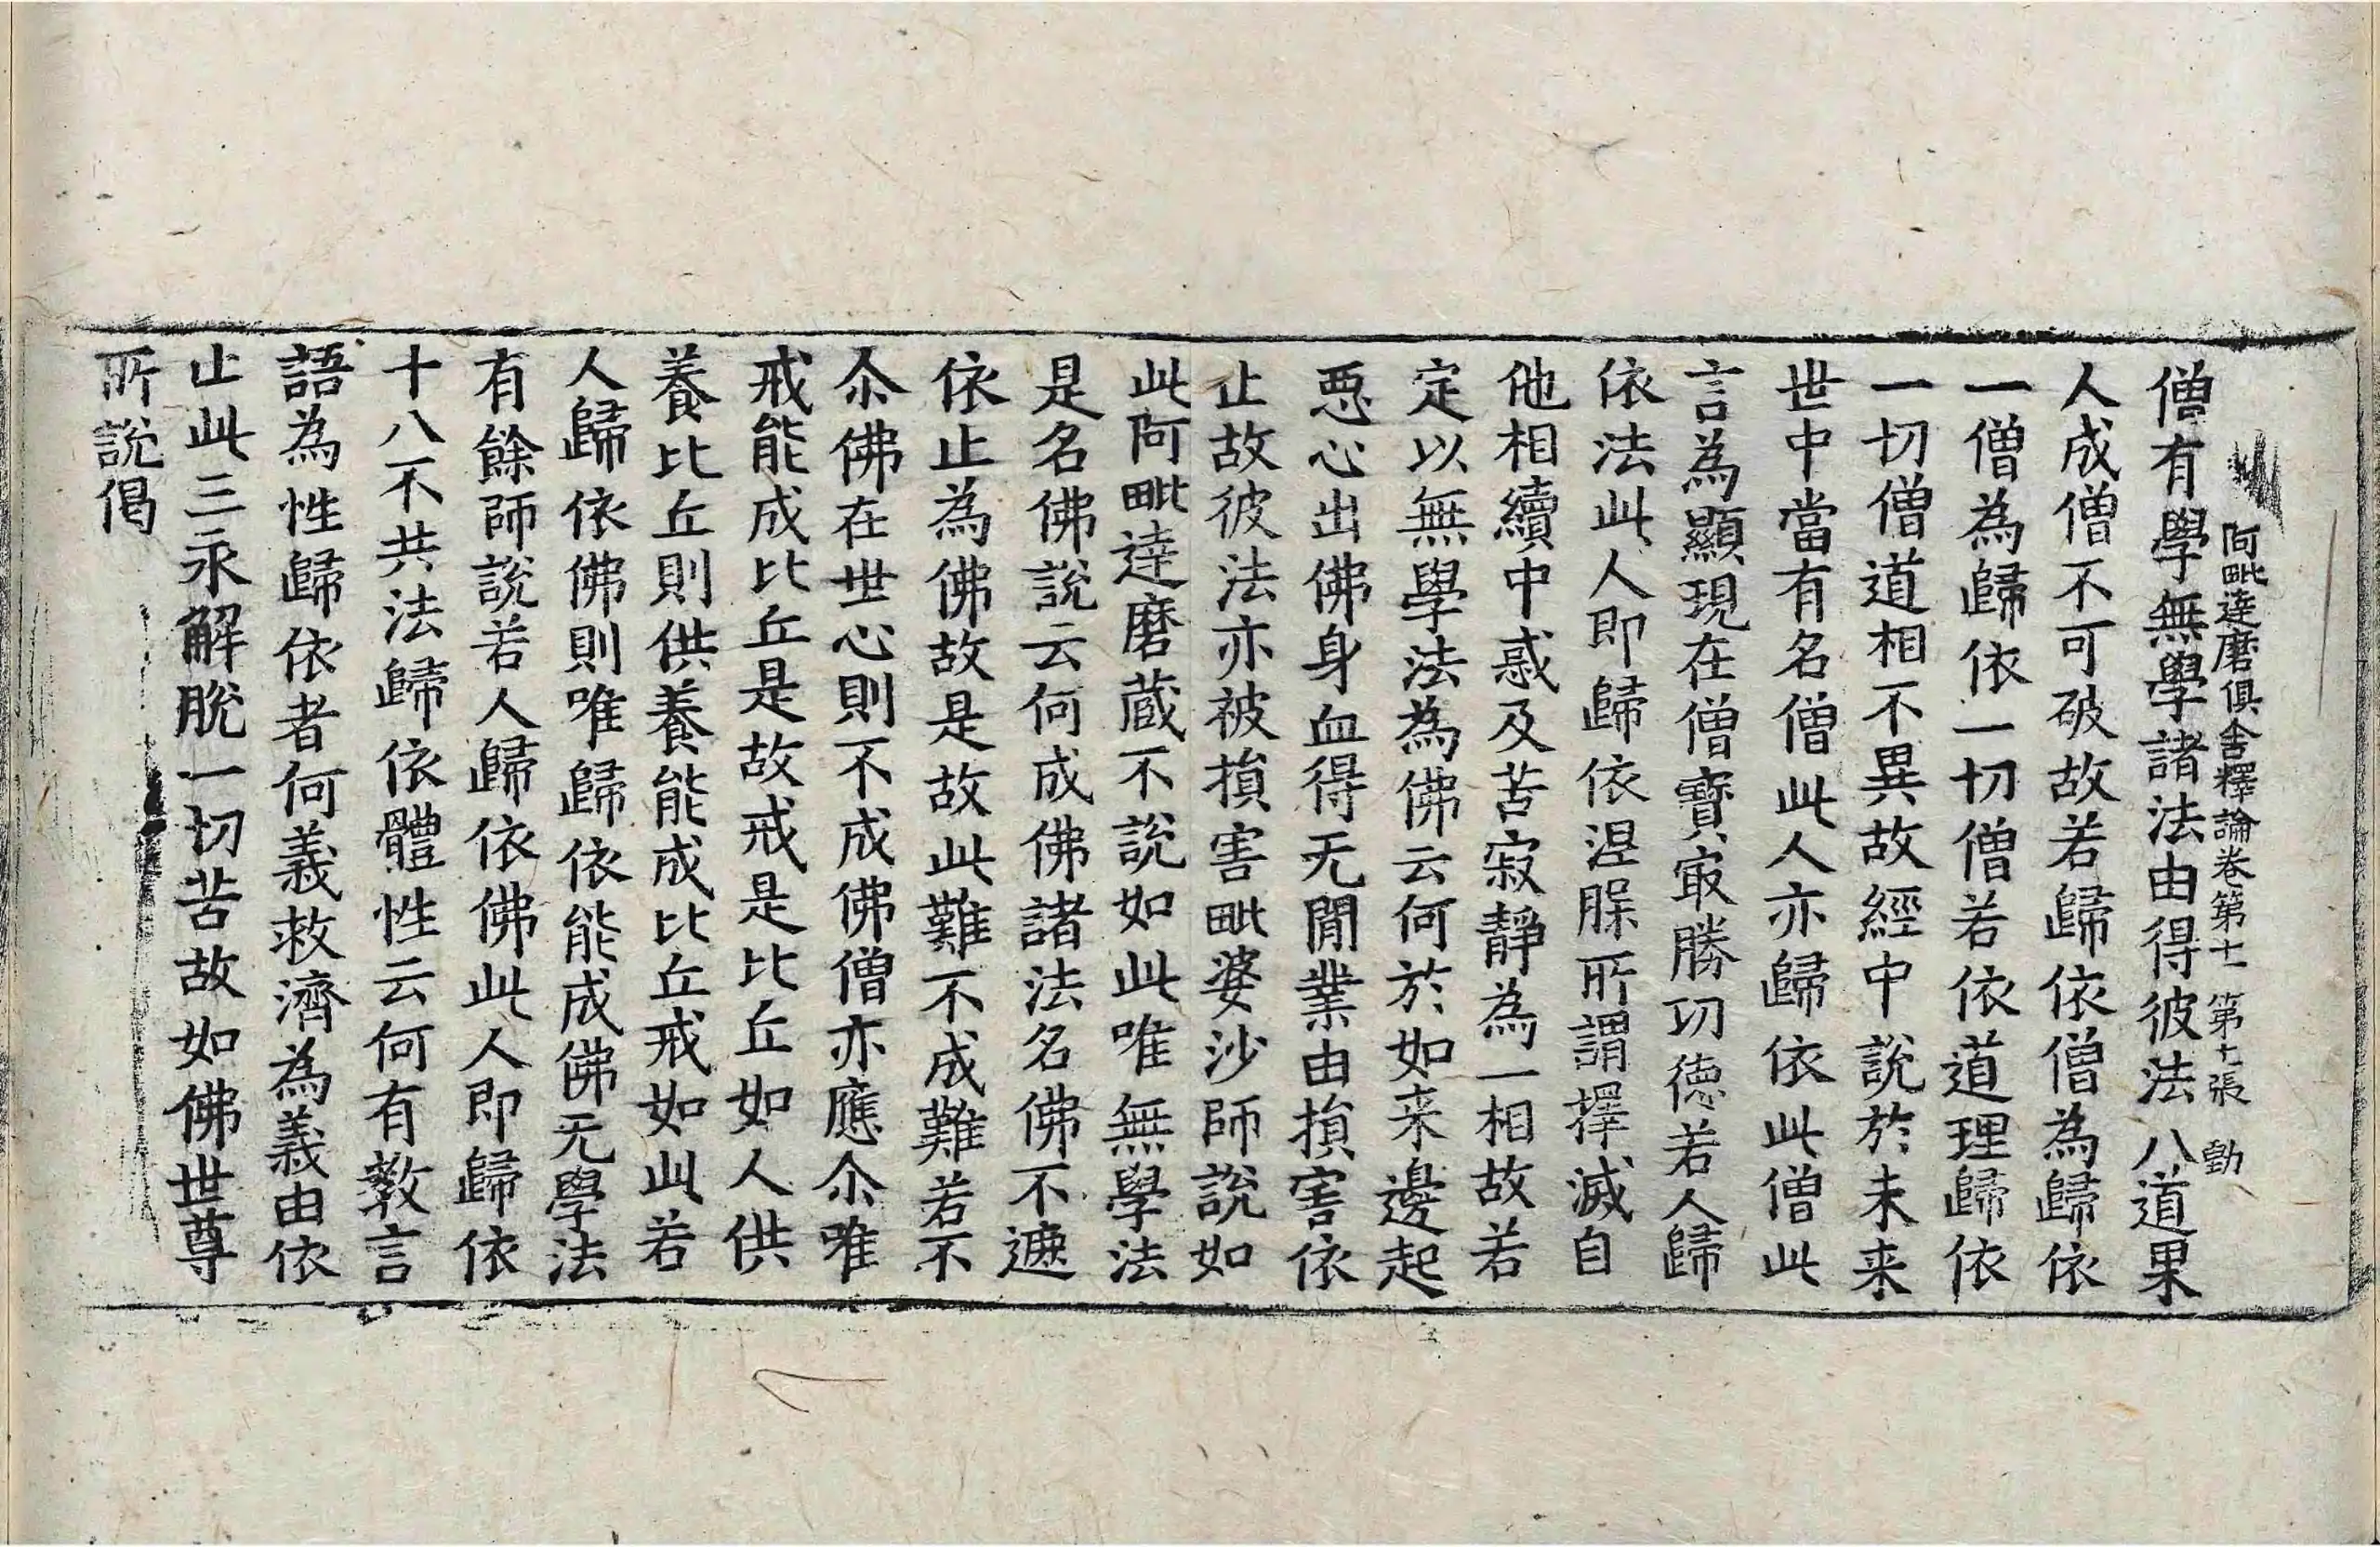 阿毗達磨俱舍釋論卷第十一 第十張 勤
僧有學無學諸法由得彼法八道果
人成僧不可破故若歸依僧為歸依
一僧為歸依一切僧若依道理歸依
一切僧道相不異故經中說於未来
世中當有名僧此人亦歸依此僧此
言為顯現在僧寶㝡勝㓛德若人歸
依法此人即歸依涅脲所謂擇滅自
他相續中惑及苦寂靜為一相故若
定以無學法為佛云何於如来邊起
惡心出佛身血得无閒業由損害依
止故彼法亦被損害毗婆沙師說如
此阿毗達磨蔵不說如此唯無學法
是名佛說云何成佛諸法名佛不遮
依止為佛故是故此難不成難若不
尒佛在世心則不成佛僧亦應尒唯
戒能成比丘是故戒是比丘如人供
養比丘則供養能成比丘戒如此若
人歸依佛則唯歸依能成佛无學法
有餘師說若人歸依佛此人即歸依
十八不共法歸依體性云何有教言
語為性歸依者何義救濟為義由依
止此三永解脫一切苦故如佛世尊
所說偈